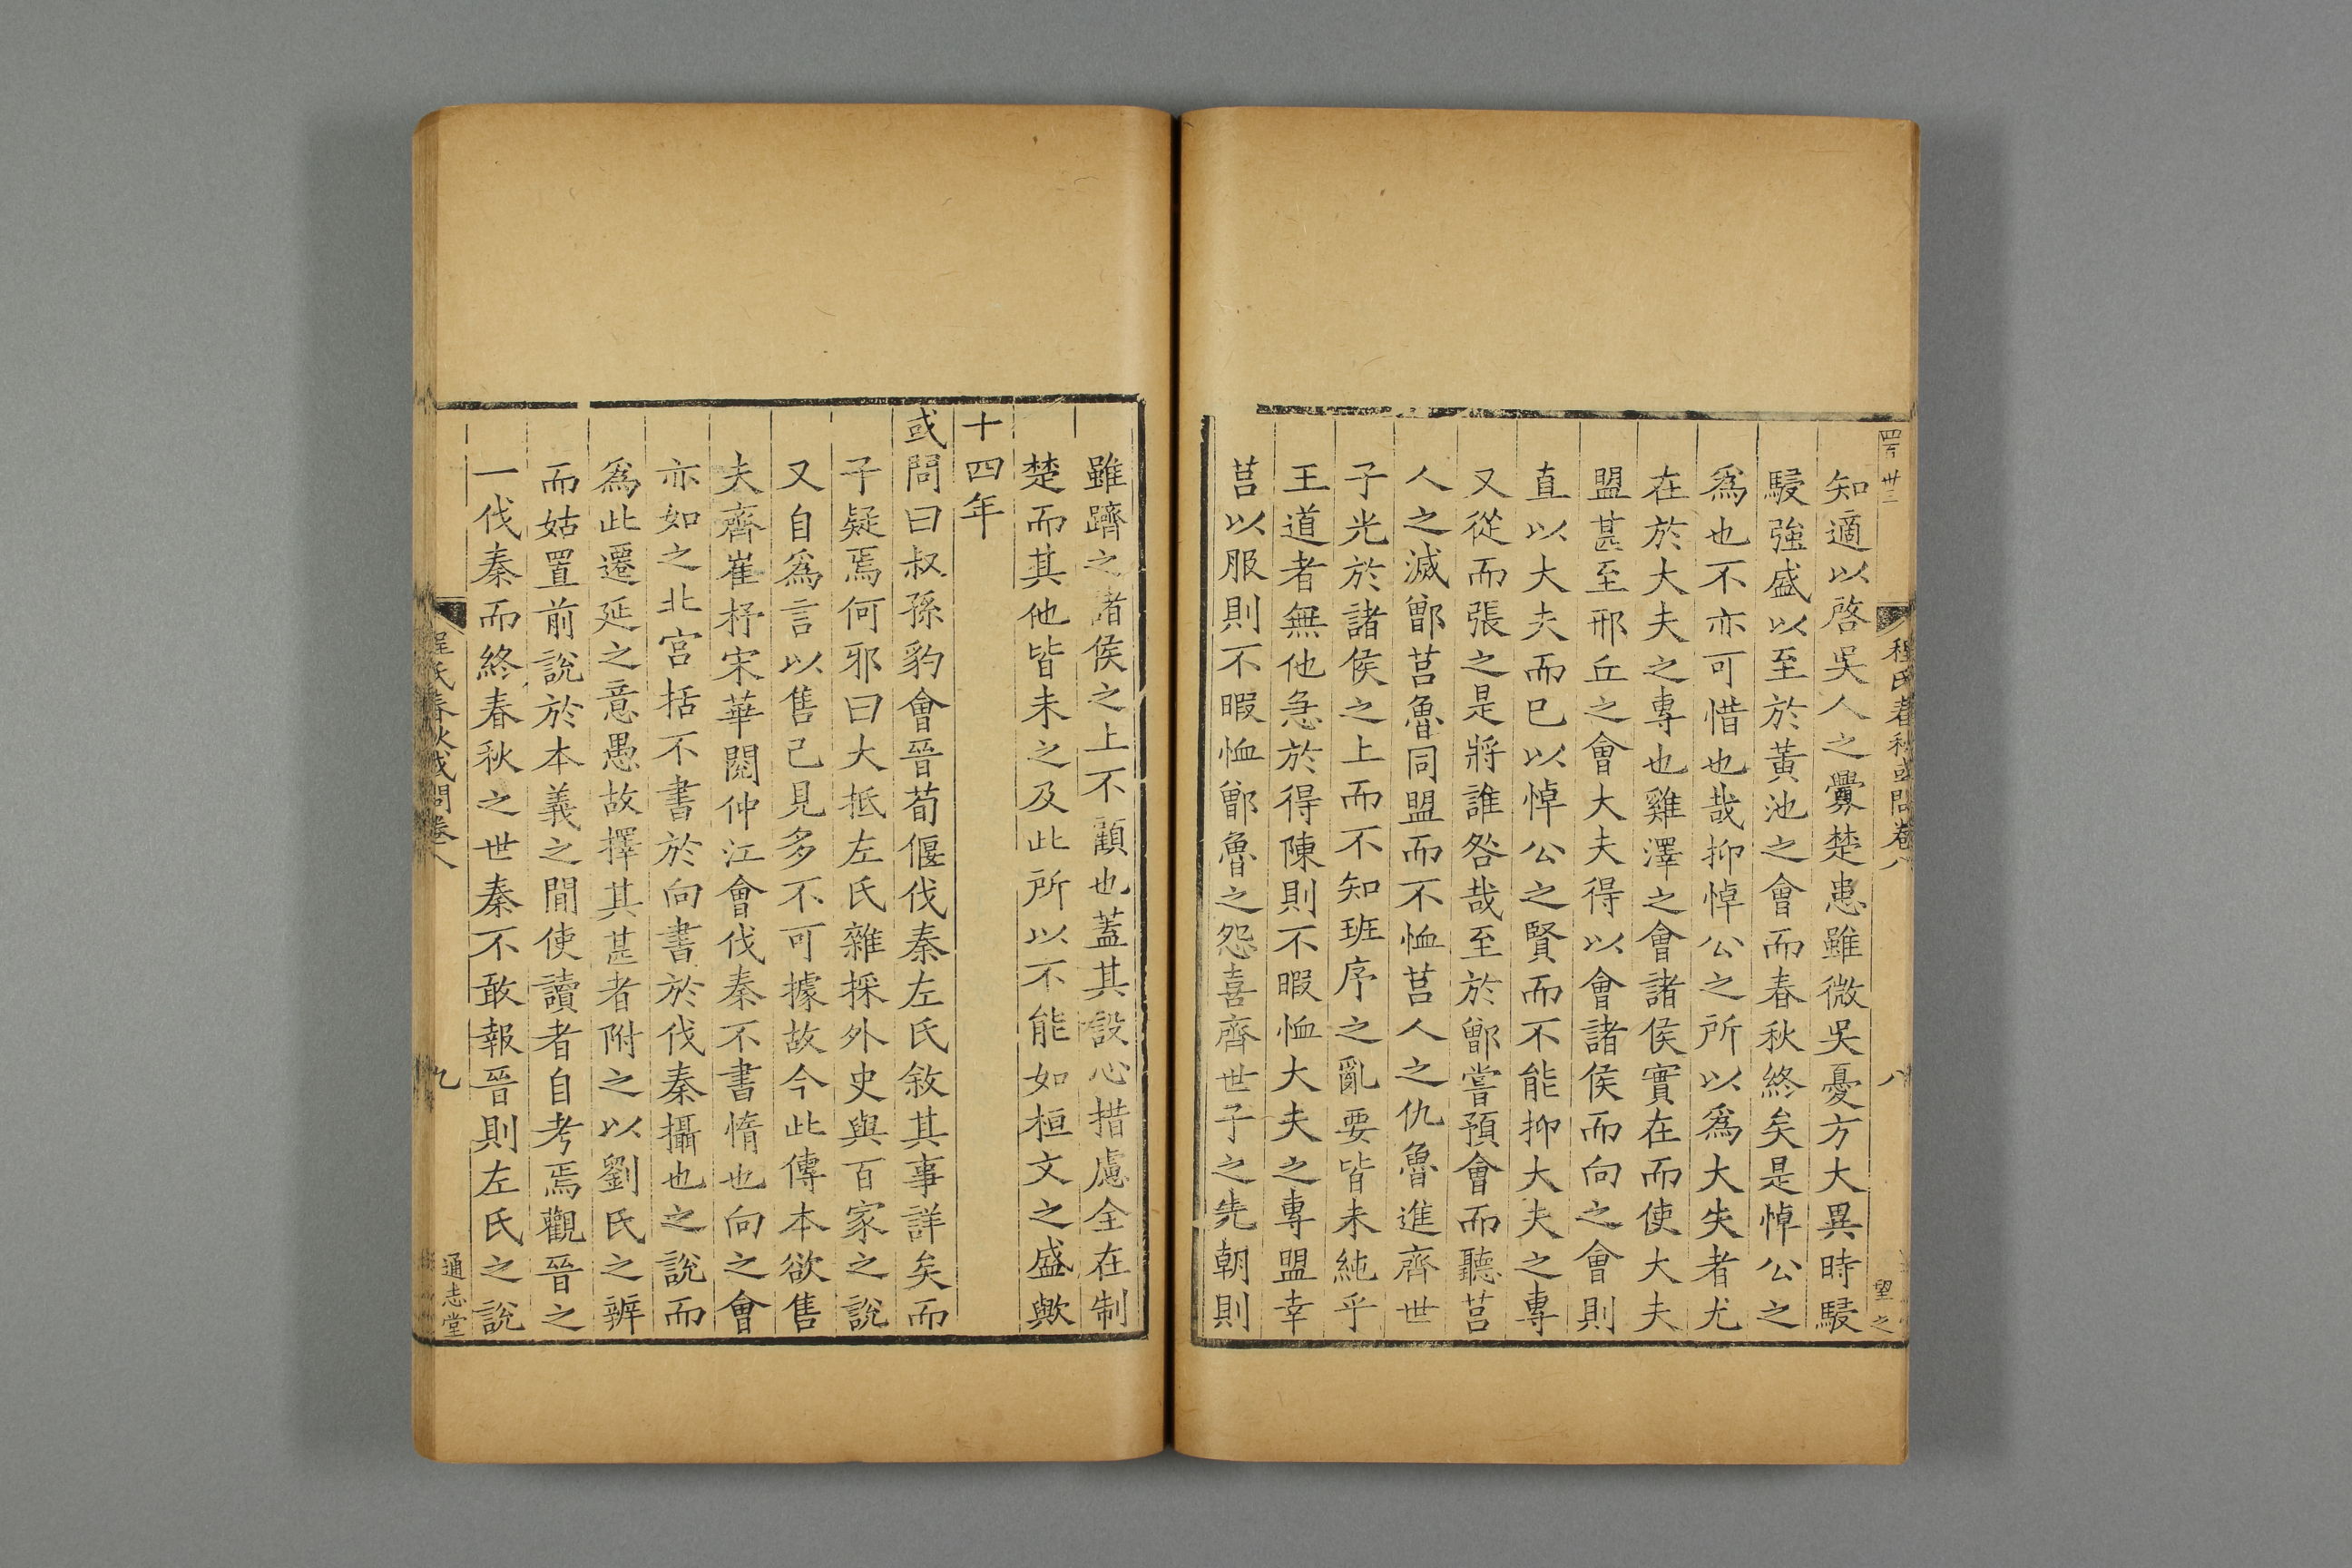 程氏春秋或問卷八
八
望之
知適以啓吳人之釁楚患雖微吳憂方大異時駸
駸強盛以至於黃池之會而春秋終矣是悼公之
爲也不亦可惜也哉抑悼公之所以爲大失者尤
在於大夫之專也雞澤之會諸侯實在而使大夫
盟甚至邢丘之會大夫得以會諸侯而向之會則
直以大夫而已以悼公之賢而不能抑大夫之專
又從而張之是將誰咎哉至於鄫嘗預會而聽莒
人之滅鄫莒魯同盟而不恤莒人之仇魯進齊世
子光於諸侯之上而不知班序之亂要皆未純乎
王道者無他急於得陳則不暇恤大夫之專盟幸
莒以服則不暇恤鄫魯之怨喜齊世子之先朝則
雖躋之諸侯之上不顧也蓋其設心措慮全在制
楚而其他皆未之及此所以不能如桓文之盛歟
十四年
或問曰叔孫豹會晉荀偃伐秦左氏敘其事詳矣而
子疑焉何邪曰大抵左氏雜採外史與百家之說
又自爲言以售己見多不可據故今此傳本欲售
夫齊崔杼宋華閱仲江會伐秦不書惰也向之會
亦如之北宮括不書於向書於伐秦攝也之說而
爲此遷延之意愚故擇其甚者附之以劉氏之辨
而姑置前說於本義之間使讀者自考焉觀晉之
一伐秦而終春秋之世秦不敢報晉則左氏之說
程氏春秋或問卷八
九
通志堂